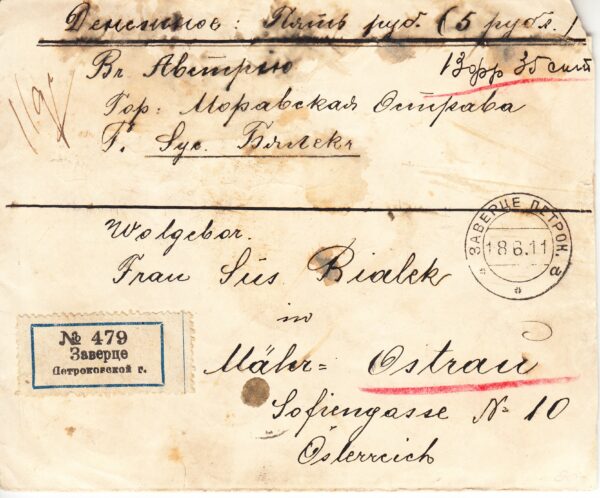 Денежное: Пять руб. (5 рубл.)
13 фр 35 сант
Въ Австрію
Гор: Моравская Острава
Г. Sус. Бялекъ
ЗАВЕРЦЕ ПЕТРОК.
18.6.11
а
Wolgebor.
Frau Süs Bialek
in
Mähr= Ostrau
Sofiengasse № 10
Österreich
№ 479
Заверце
Петроковской г.